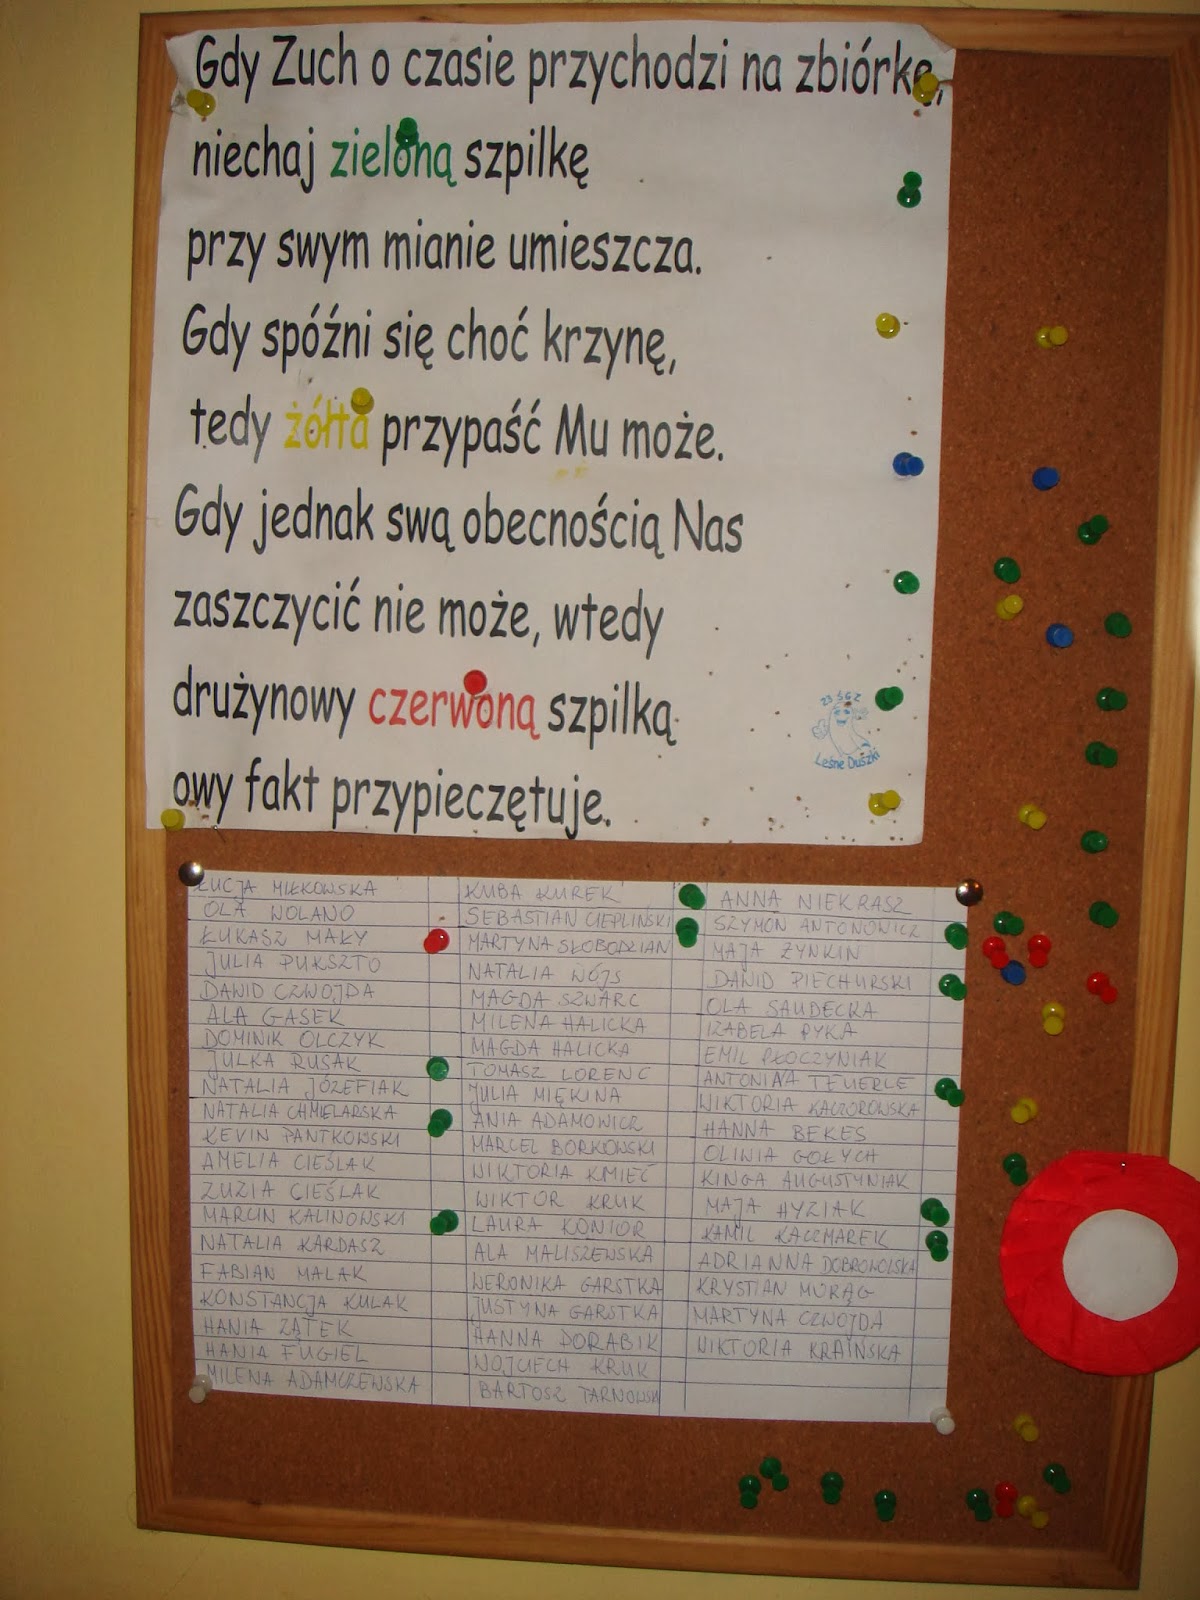 Gdy Zuch o czasie przychodzi na zbiórkę,
niechaj zieloną szpilkę
przy swym mianie umieszcza.
Gdy spóźni się choć krzynę,
tedy żółta przypaść Mu może.
Gdy jednak swą obecnością Nas
zaszczycić nie może, wtedy
drużynowy czerwoną szpilką
owy fakt przypieczętuje.
23 ŚGZ
Leśne Duszki
ŁUCJA MIŁKOWSKA
OLA WOLANO
ŁUKASZ MAŁY
JULIA PUKSZTO
DAWID CZWOJDA
ALA GASEK
DOMINIK OLCZYK
JULKA RUSAK
NATALIA JÓZEFIAK
NATALIA CHMIELARSKA
KEVIN PANTKOWSKI
AMELIA CIEŚLAK
ZUZIA CIEŚLAK
MARCIN KALINOWSKI
NATALIA KARDASZ
FABIAN MALAK
KONSTANCJA KULAK
HANIA ZĄTEK
HANIA FUGIEL
MILENA ADAMCZEWSKA
KUBA KUREK
SEBASTIAN CIEPLIŃSKI
MARTYNA SŁOBODZIAN
NATALIA WÓJS
MAGDA SZWARC
MILENA HALICKA
MAGDA HALICKA
TOMASZ LORENC
JULIA MIĘKINA
ANIA ADAMOWICZ
MARCEL BORKOWSKI
WIKTORIA KMIEĆ
WIKTOR KRUK
LAURA KONIOR
ALA MALISZEWSKA
WERONIKA GARSTKA
JUSTYNA GARSTKA
HANNA DORABIK
WOJCIECH KRUK
BARTOSZ
ANNA NIEKRASZ
SZYMON ANTONOWICZ
MAJA ŻYNKIN
DAWID PIECHURSKI
OLA SAUDECKA
IZABELA PYKA
EMIL PŁOCZYNIAK
ANTONINA TEUERLE
WIKTORIA KACZOROWSKA
HANNA BEKES
OLIWIA GOŁYCH
KINGA AUGUSTYNIAK
MAJA HYZIAK
KAMIL KACZMAREK
ADRIANNA DOBROWOLSKA
KRYSTIAN MORĄG
MARTYNA CZWOJDA
WIKTORIA KRAIŃSKA